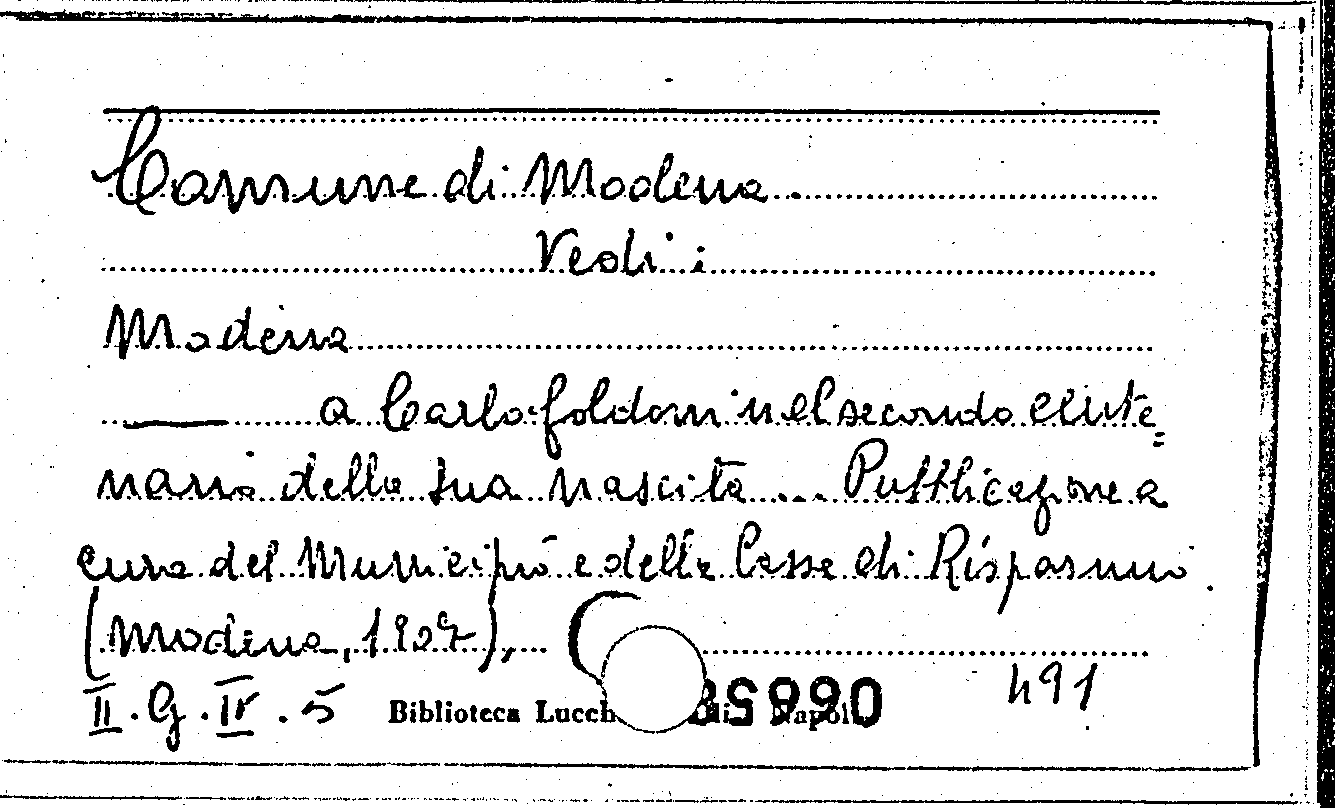 Comune di Modena.
Vedi:
Modena
— a Carlo Goldoni nel secondo cente=
nario della sua nascita... Pubblicazione a
cura del Municipio e della Cassa di Risparmio.
(Modena, 1907), ...
II. G. IV. 5 Biblioteca Lucch Napoli 491